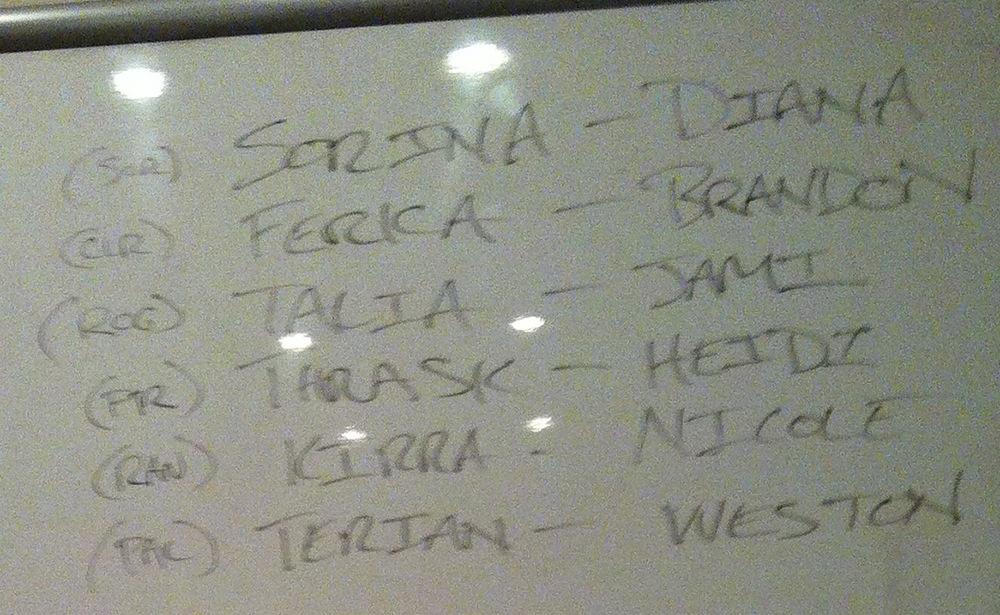 (SOR) SORINA - DIANA
(CLR) FERICA - BRANDON
(ROG) TALIA - JAMI
(FTR) THRASK - HEIDI
(RAN) KIRRA - NICOLE
TERIAN - WESTON